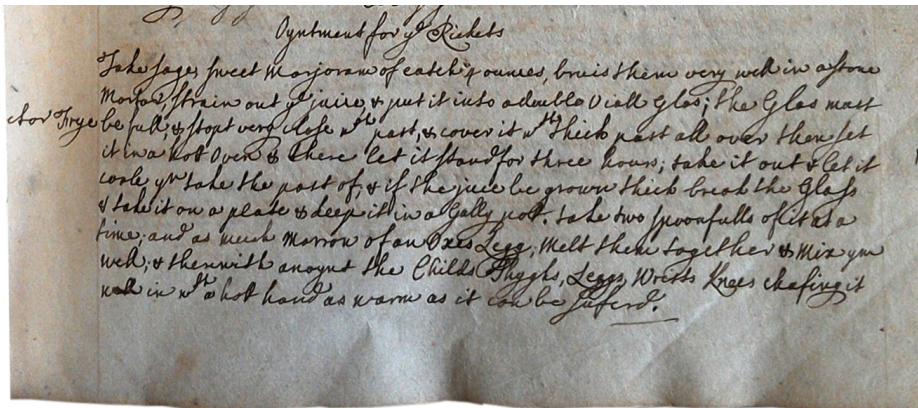 Oyntment for ye Rickets
Take sage, sweet Marjoram of each 4 ounces, bruis them very well in a stone
Mortar, strain out ye juice, & put it into a double Viall Glas; the Glas must
ctor Frye be full, & stopt very close wth past, & cover it wth thick past all over then set
it in a hot Oven & there let it stand for three hours; take it out & let it
coole yn take the past of, & if the juce be grown thick break the Glass
& take it on a plate & keep it in a Gally pot. take two spoonfulls of it at a
time, and as much Marrow of an Oxes Legg, Melt them together & Mix ym
well; & therewith anoynt the Childs Thyghs, Leggs, Wrists Knees chafing it
well in wth a hot hand as warm as it can be suferd.